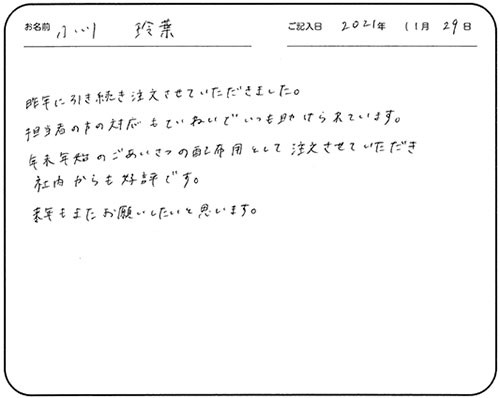 お名前 小川 玲葉 ご記入日 2021年 11月 29日
昨年に引き続き注文させていただきました。
担当者の方の対応もていねいでいつも助けられています。
年末年始のごあいさつの配布用として注文させていただき
社内からも好評です。
来年もまたお願いしたいと思います。